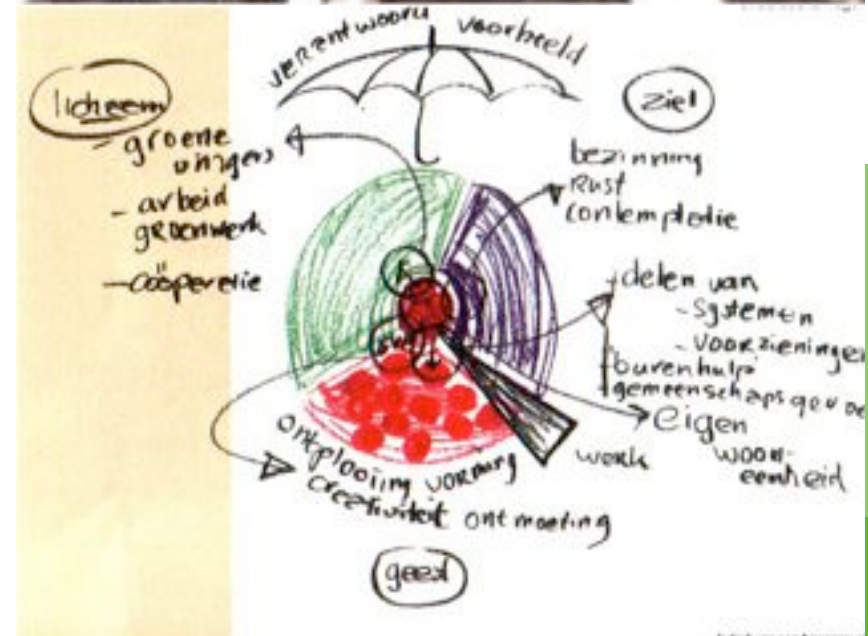 voorbeeld
licheem
ziel
- groene
- arbeid
groenwerk
- coöperetie
bezinning
Rust
contempletie
delen van
- Systemen
- voorzieninge
burenhulp
gemeenschapsgevoe
eigen
woon-
eenheid
werk
ontplooiing vorming
creativiteit ontmoeting
geest